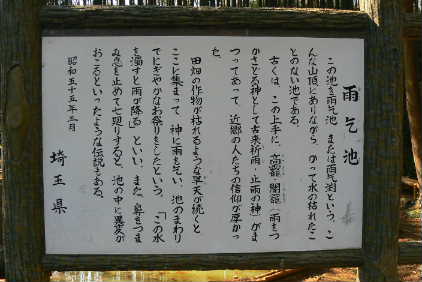 雨乞池
この池を雨乞池 または雨乞渕という。こ
んな山頂にありながら、かつて水の枯れたこ
とのない池である。
古くは、この上手に、高龗・闇龗(雨をつ
かさどる神として古来祈雨・止雨の神)がま
つってあって、近郷の人たちの信仰が厚かっ
た。
田畑の作物が枯れるような旱天が続くと
ここに集まって、神に雨を乞い、池のまわり
でにぎやかなお祭りをしたという。「この水
を濁すと雨が降る」といい、また、鼻をつま
み息を止めて七廻りすると、池の中に異変が
おこるといったような伝説もある。
昭和五十五年三月
埼玉県